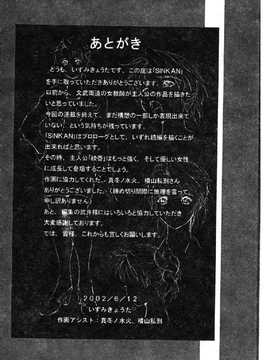 あとがき
どうも、いずみきょうたです。この度は「SINKAN」
を手に取っていただきありがとうございます。
以前から、文武両道の女教師が主人公の作品を描きた
いと思っていました。
今回の連載を終えて、まだ構想の一部しか表現出来て
いない、という気持ちが残っています。
「SINKAN」はプロローグとして、いずれ続編を描くことが
出来ればと思います。
その時、主人公「綾香」はもっと強く、そして優しい女性
に成長して登場することでしょう。
作画に協力してくれた、真冬ノ水火、横山私別さん
ありがとうございました。（締め切り間際に無理を言って
申し訳ありません）
あと、編集の武井様にはいろいろと協力していただき
大変感謝しております。
では、皆様、これからも宜しくお願いします。
2002/6/12
いずみきょうた
作画アシスト：真冬ノ水火、横山私別